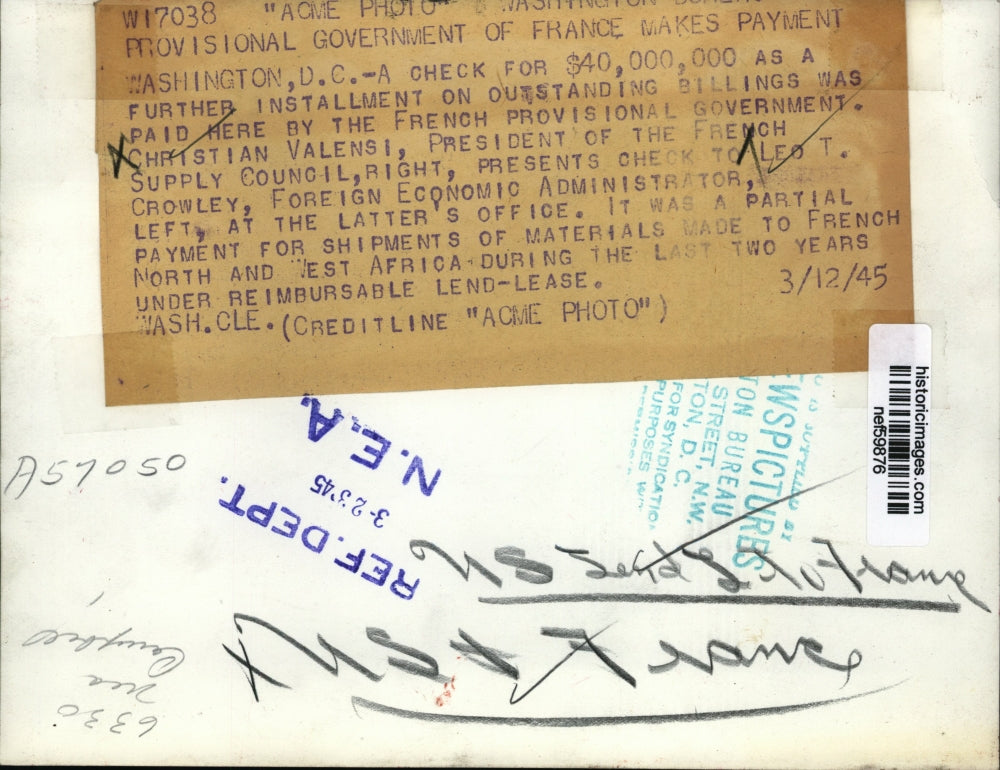 W17038 "ACME PHOTO" WASHINGTON BUREAU
PROVISIONAL GOVERNMENT OF FRANCE MAKES PAYMENT
WASHINGTON, D.C.-A CHECK FOR $40,000,000 AS A
FURTHER INSTALLMENT ON OUTSTANDING BILLINGS WAS
PAID HERE BY THE FRENCH PROVISIONAL GOVERNMENT.
CHRISTIAN VALENSI, PRESIDENT OF THE FRENCH
SUPPLY COUNCIL, RIGHT, PRESENTS CHECK TO LEO T.
CROWLEY, FOREIGN ECONOMIC ADMINISTRATOR,
LEFT, AT THE LATTER'S OFFICE. IT WAS A PARTIAL
PAYMENT FOR SHIPMENTS OF MATERIALS MADE TO FRENCH
NORTH AND WEST AFRICA DURING THE LAST TWO YEARS
UNDER REIMBURSABLE LEND-LEASE. 3/12/45
WASH.CLE. (CREDITLINE "ACME PHOTO")
historicimages.com
nef59876
EWSPICTURES
TON BUREAU
STREET, N.W.
TON, D. C.
FOR SYNDICATIO
PURPOSES
N.E.A.
3-23'45
REF. DEPT.
A57050
France
U S
France
U S
6330
nea
Campbell